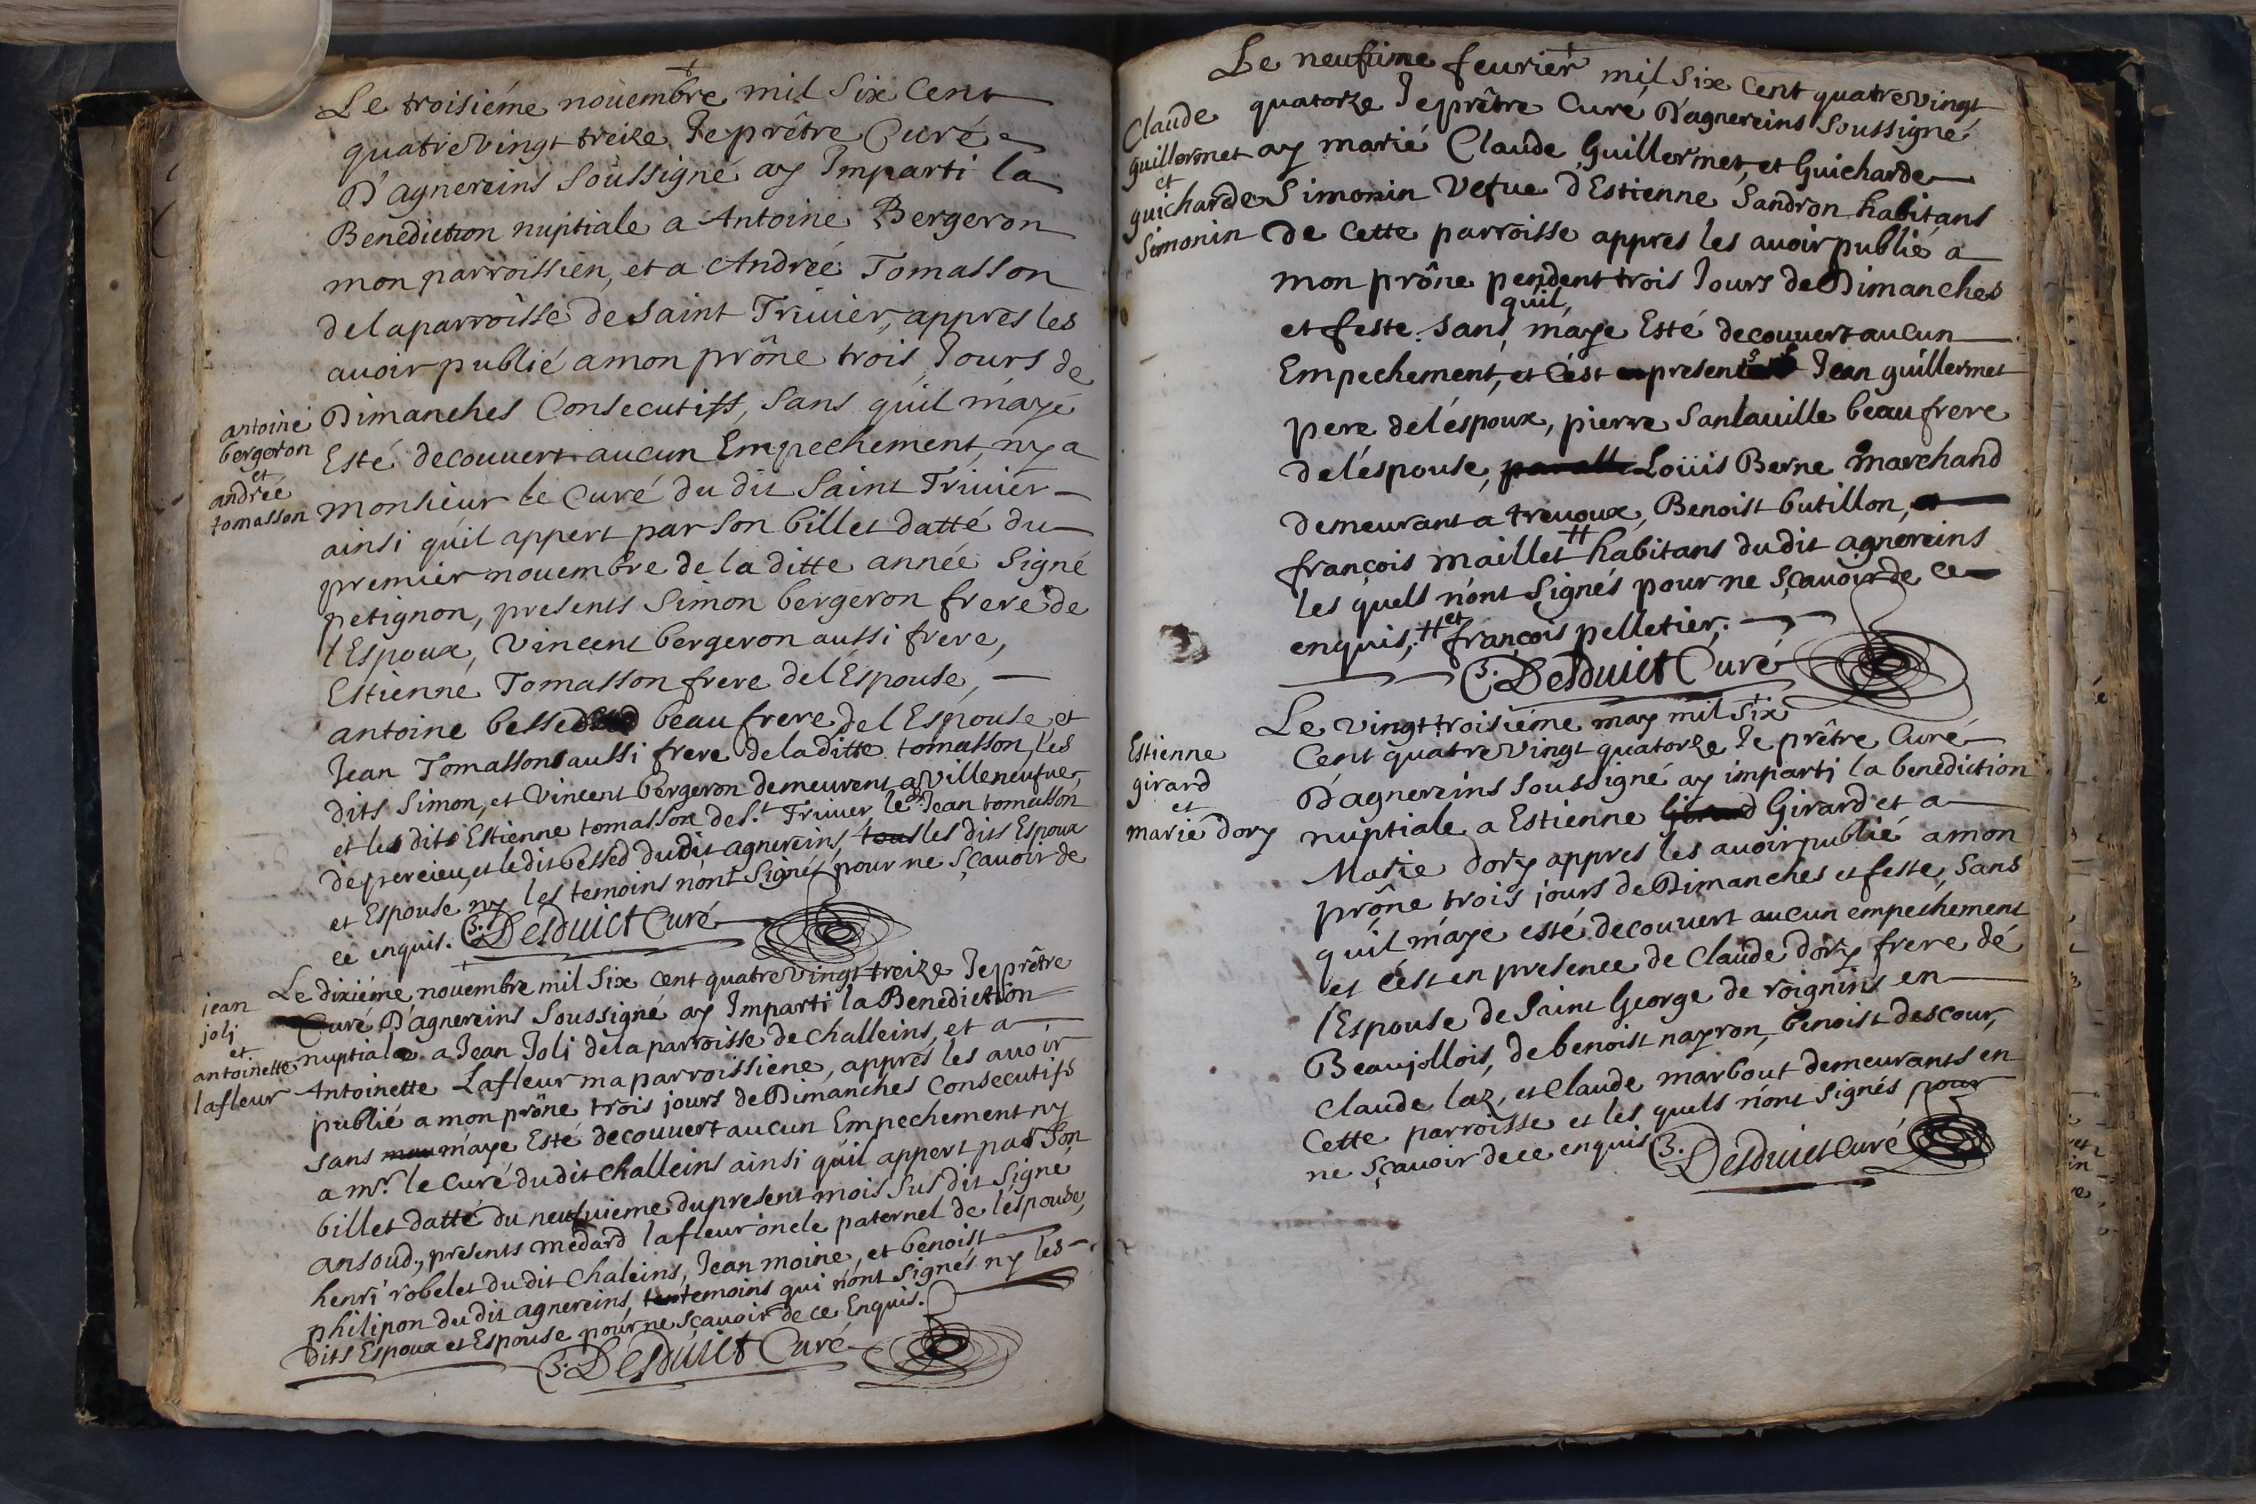 Le troisiéme nouembre mil Six Cent
quatreVingt treize Je prêtre Curé
D'agnereins Soussigné ay Imparti la
Benediction nuptiale a Antoine Bergeron
mon parroissien, et a Andreé Tomasson
de la parroisse de Saint Triuier, appres les
auoir publié a mon prône trois Jours de
antoine
bergeron
et
andreé
tomasson
Dimanches Consecutifs, Sans quil m'aye
Esté decouuert aucun Empechement, ny a
monsieur le Curé du dit Saint Triuier
ainsi qúil appert par Son billet datté du
premier nouembre de la ditte année Signé
petignon, presents Simon bergeron frere de
l'Espoux, Vincent bergeron aussi frere,
Estienne Tomasson frere de l'Espouse,
antoine bessed beau frere de l'Espouse, et
Jean Tomasson aussi frere de la ditte tomasson, les
dits Simon, et Vincent bergeron demeurent a Villeneufue,
et les dits Estienne tomasson de S.t Triuier le Jean tomasson
de percieu, et le dit bessed du dit agnereins, les dits Espoux
et Espouse ny les temoins nont Signés pour ne Sçauoir de
ce enquis. Desduict Curé
jean
joli
et
antoinette
lafleur
Le dixiéme nouembre mil Six cent quatreVingt treize Je prêtre
Curé D'agnereins Soussigné ay Imparti la Benediction
nuptiale a Jean Joli de la parroisse de challeins, et a
Antoinette Lafleur ma parroissiene, appres les auoir
publié a mon prône trois jours de Dimanches Consecutifs
sans m'aye Esté decouuert aucun Empechement ny
a m.r le Curé du dit Challeins ainsi qúil appert par Son
billet datté du neufuieme du present mois Sus dit Signé
ansoud, presents medard lafleur oncle paternel de l'espouse,
henri rôbelet du dit Chaleins, Jean moine, et benoist
philipon du dit agnereins, temoins qui n'ont Signés ny les
dits Espoux et Espouse pour ne Sçauoir de ce Enquis.
Desduict Curé
Le neufuime feurier mil Six Cent quatreVingt
Claude
guillermet
et
guicharde
Simonin
quatorze Je prêtre Curé D'agnereins Soussigné
ay marié Claude Guillermet, et Guicharde
Simonin Vefue d'Estienne Sandron habitans
de Cette parroisse appres les auoir publié a
mon prône pendent trois Jours de Dimanches
quil
et feste. sans m'aye Esté decouuert aucun
Empechement, et c'est presents Jean guillermet
pere de l'éspoux, pierre Sanlauille beau frere
de l'éspouse, Loüis Berne marchand
demeurant a treuoux, Benoist butillon,
françois maillet # habitans du dit agnereins
les quels n'ont Signés pour ne Sçauoir de ce
enquis, # et françois pelletier.
Desduict Curé
Estienne
girard
et
marie dory
Le Vingt troisiéme may mil Six
Cent quatreVingt quatorze Je prêtre Curé
D'agnereins Soussigné ay imparti la benediction
nuptiale a Estienne Girard et a
Marie dory appres les auoir publié a mon
prône trois jours de Dimanches et feste, Sans
quil m'aye esté decouuert aucun empechement
et c'est en presence de Claude dory frere de
l'Espouse de Saint George de roignins en
Beaujollois, de benoist nayron, benoist descour,
Claude laz, et Claude marbout demeurants en
Cette parroisse et les quels n'ont Signés pour
ne Sçauoir de ce enquis Desduict Curé